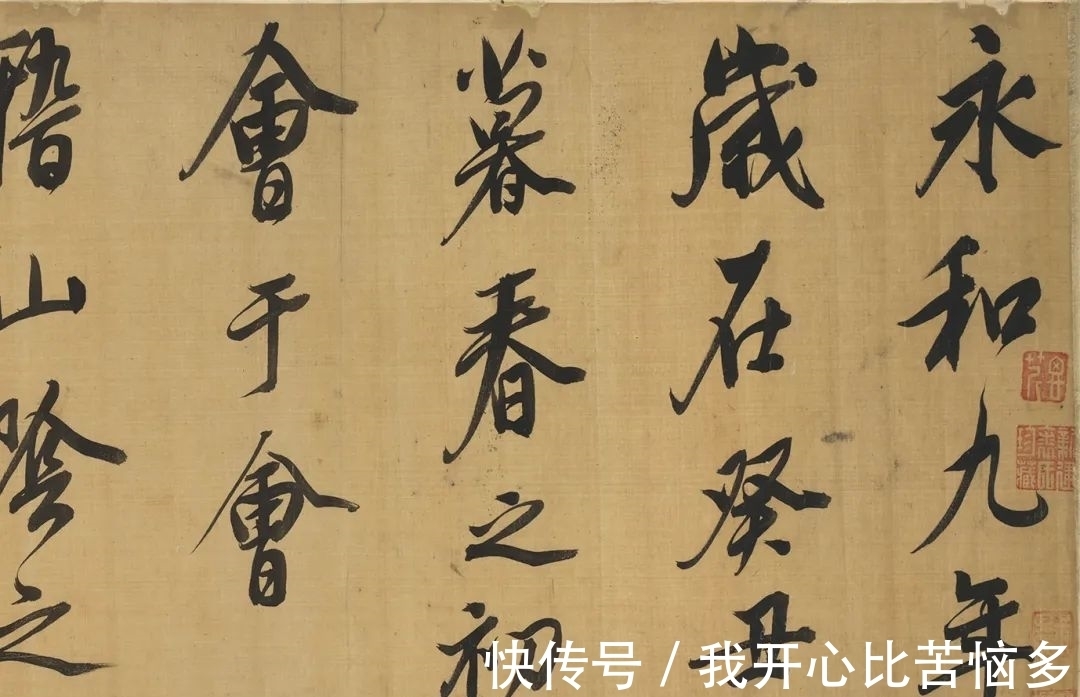 永和九年
歲在癸丑
暮春之初
會于會
稽山陰之
快传号 / 我开心比苦恼多